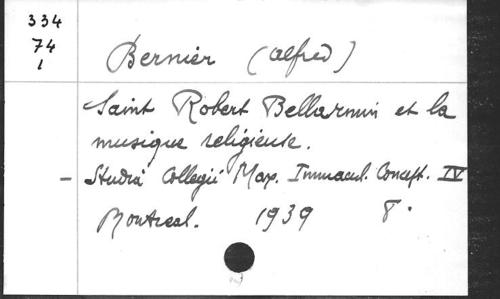 334
74
1
Bernier (Alfred)
Saint Robert Bellarmin et la
musique religieuse.
- Studia Collegii Max. Immacul. Concept. IV
Montreal. 1939 8°